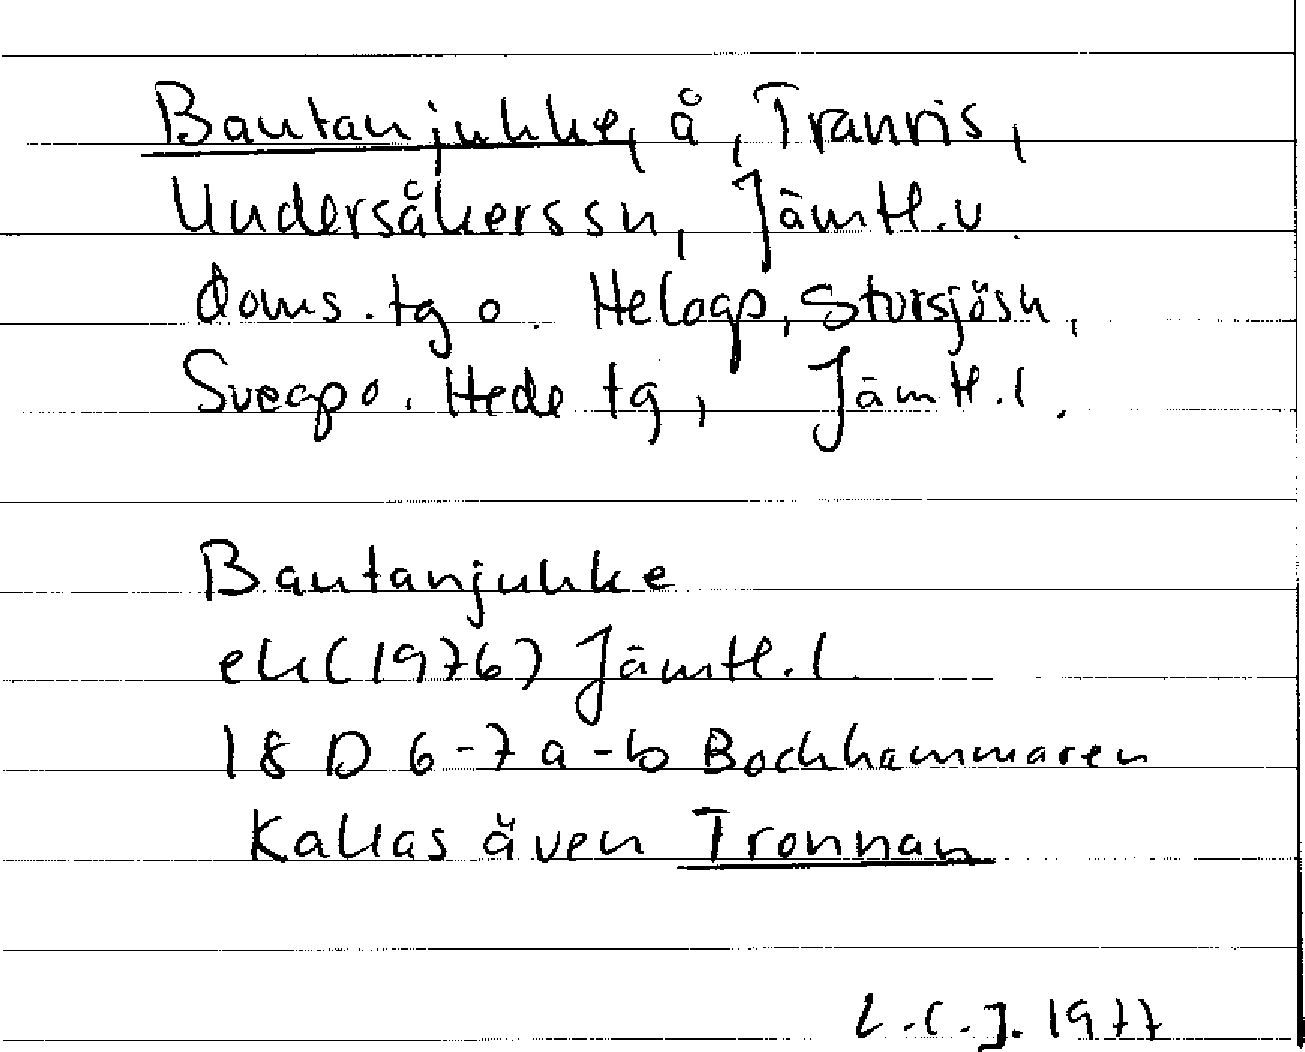 Bautanjuhke, å, Tranris,
Undersåkers sn, Jämtl.v.
doms.tg o. Helags, Storsjö sn,
Svegs o. Hede tg, Jämtl.l.
Bautanjuhke
ek (1976) Jämtl.l.
18 D 6-7 a-b Bockhammaren
Kallas även Tronnan
L.C.J. 1977